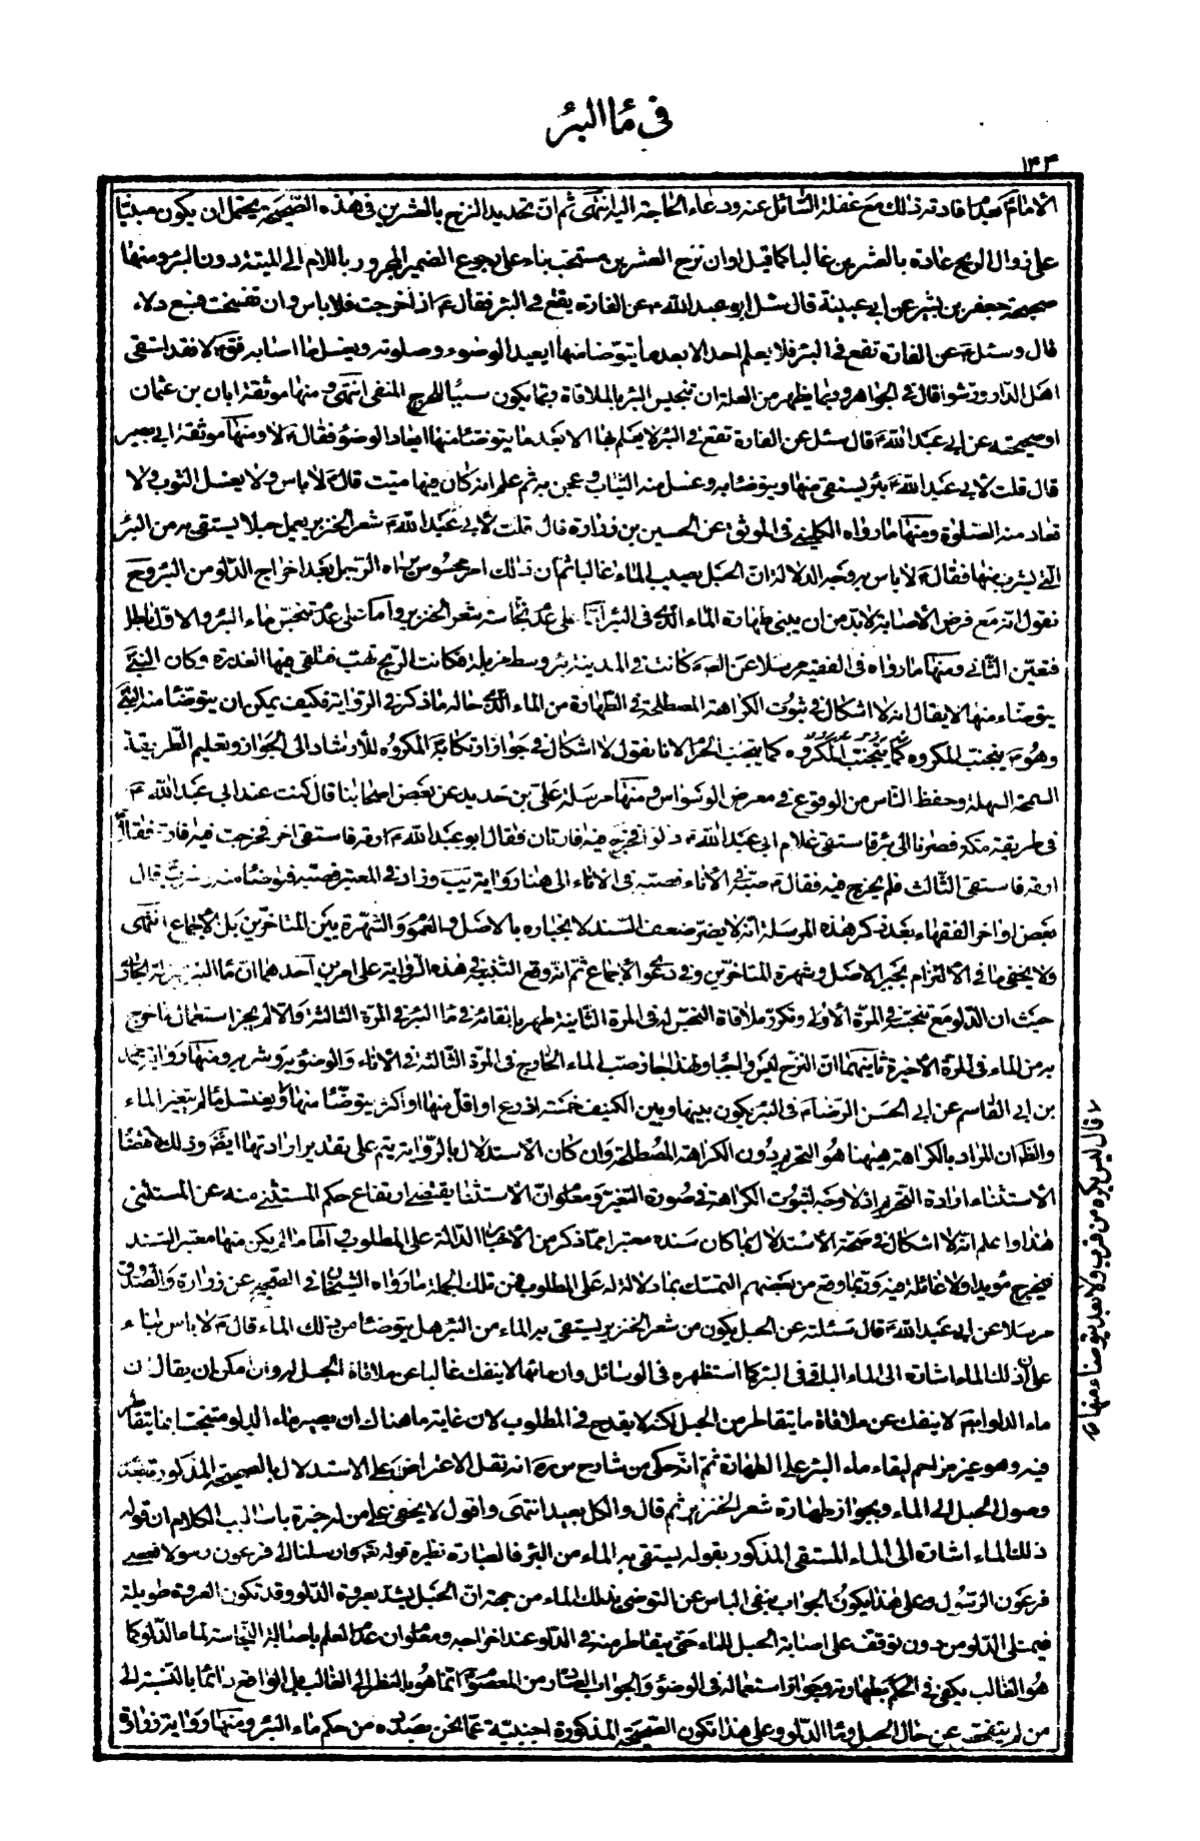 في ماء البئر
١٤٣
الامام بعد افادته ذلك مع غفلة السّائل عنه ودعاء الحاجة اليه انتهى ثم انّ تحديد النزح بالعشرين في هذه الصّحيحة يحتمل ان يكون مبنيّا
على زوال الريح عادة بالعشرين غالبا كما قيل اوان نزح العشرين مستحبّ بناء على رجوع الضمير المجرور باللام الى الميتة دون البئر ومنها
صحيحة جعفر بن بشير عن ابي عيينة قال سئل ابو عبد الله ع عن الفارة يقع في البئر فقال ع اذا خرجت فلا باس وان تفسّخت فسبع دلاء
قال وسئل ع عن الفارة تقع في البئر فلا يعلم احد الا بعد ما يتوضا منها ايعيد الوضوء وصلوته ويغسل ما اصابه فق ع لا فقد استقى
اهل الدار ورشوا قال في الجواهر وربما يظهر من العلة ان تنجيس البئر بالملاقاة ربما يكون سببا للحرج المنفي انتهى ومنها موثقة ابان بن عثمان
او صحيحته عن ابي عبد الله ع قال سئل عن الفارة تقع في البئر لا يعلم بها الا بعد ما يتوضا منها ايعاد الوضوء فقال ع لا ومنها موثقة ابي بصير
قال قلت لابي عبد الله ع بئر يستقى منها ويتوضا به وغسل منه الثياب وعجن به ثم علم انه كان فيها ميت قال ع لا باس ولا يغسل الثوب ولا
تعاد منه الصلوة ومنها ما رواه الكليني في الموثق عن الحسين بن زرارة قال قلت لابي عبد الله ع شعر الخنزير يعمل حبلا يستقى به من البئر
الّتي يشرب منها فقال ع لا باس به وجه الدلالة ان الحبل يصيب الماء غالبا ثم ان ذلك امر محسوس يراه الرجل بعد اخراج الدلو من البئر وح
نقول انّه مع فرض الاصابة لا بد من ان يبنى طهارة الماء الذي في البئر امّا على عدم نجاسة شعر الخنزير وامّا على عدم تنجّس ماء البئر والاول باطل
فتعيّن الثاني ومنها ما رواه في الفقيه مرسلا عن الص ع كانت في المدينة بئر وسط مزبلة فكانت الريح تهب فتلقي فيها العذرة وكان النبي ص
يتوضاء منها لا يقال انه لا اشكال في ثبوت الكراهة المصطلحة في الطهارة من الماء الذي حاله ما ذكر في الرواية فكيف يمكن ان يتوضا منه النبي ص
وهو ع يجتنب المكروه كما يجتنب المكروه كما يجتنب الحرام لانا نقول لا اشكال في جواز ارتكابه المكروه للارشاد الى الجواز وتعليم الطريقة
السمحة السهلة وحفظ الناس من الوقوع في معرض الوسواس ومنها مرسلة علي بن حديد عن بعض اصحابنا قال كنت عند ابي عبد الله ع
في طريق مكة فصرنا الى بئر فاستقى غلام ابي عبد الله ع دلوا فخرج فيه فارتان فقال ابو عبد الله ع ارقه فاستقى اخر فخرجت فيه فارة فقال ع
ارقه فاستقى الثالث فلم يخرج فيه فقال ع صبّه في الاناء فصبّه في الاناء الى هنا رواية يب وزاد في المعتبر فصبّه فتوضا منه وشرب قال
بعض اواخر الفقهاء بعد ذكر هذه المرسلة انّه لا يضرّ ضعف السّند لانجباره بالاصل والعموم والشهرة بين المتاخّرين بل الاجماع انتهى
ولا يخفى ما في الالتزام بجبر الاصل وشهرة المتاخّرين وفي دعوى الاجماع ثم انّه وقع التنبيه في هذه الرواية على امرين احدهما ان ماء البئر بمنزلة الجاري
حيث ان الدلو مع تنجّسه في المرة الاولى وتكرّر ملاقاة النجس له في المرة الثانية طهر بالقائه في ماء البئر في المرة الثالثة والّا لم يجز استعمال ما خرج
به من الماء في المرة الاخيرة ثانيهما انّ النزح ليس واجبا ولهذا اجاز صبّ الماء الخارج في المرة الثّالثة في الاناء والوضوء به وشربه ومنها رواية محمد
بن ابي القاسم عن ابي الحسن الرضا ع في البئر يكون بينها وبين الكنيف خمسة اذرع او اقل منها او اكثر يتوضّا منها ويغتسل ما لم يتغير الماء
والظ ان المراد بالكراهة هيهنا هو التحريم دون الكراهة المصطلحة وان كان الاستدلال بالرّواية يتم على تقدير ارادتها ايضا وذلك لاقتضاء
الاستثناء ارادة التحريم اذ لا وجه لثبوت الكراهة في صورة التغير ومعلوم انّ الاستثناء يقتضي ارتفاع حكم المستثنى منه عن المستثنى
هذا واعلم انّه لا اشكال في صحة الاستدلال بما كان سنده معتبرا ممّا ذكر من الاخبار الدّالة على المطلوب امّا ما لم يكن منها معتبر السند
فيخرج مؤيدا ولا غائلة فيه وربما وقع من بعضهم التمسّك بما دلالة له على المطلوب فمن تلك الجملة ما رواه الشيخان في الصحيح عن زرارة والصّدوق
مرسلا عن ابي عبد الله ع قال سئلته عن الحبل يكون من شعر الخنزير يستقى به الماء من البئر هل يتوضا من ذلك الماء قال ع لا باس بناء
على ان ذلك الماء اشارة الى الماء الباقي في البئر كما استظهره في الوسائل وان مائها لا ينفك غالبا عن ملاقاة الحبل له وان امكن ان يقال ان
ماء الدلو ايضا لا ينفك عن ملاقاة ما يتقاطر من الحبل لكنه لا يقدح في المطلوب لان غاية ما هناك ان يصير ماء الدلو متنجّسا بما يتقاطر
فيه وهو غير مزاحم لبقاء ماء البئر على الطهارة ثمّ انّه حكى من شارح س ره انه نقل الاعتراض على الاستدلال بالصحيحة المذكورة
وصول الحبل الى الماء وبجواز طهارة شعر الخنزير ثم قال والكل بعيد انتهى واقول لا يخفى على من له خبرة باساليب الكلام ان قوله
ذلك الماء اشارة الى الماء المستقى المذكور بقوله يستقى به الماء من البئر فالعبارة نظيره قوله تعه كما ارسلنا الى فرعون رسولا فعصى
فرعون الرسول وعلى هذا يكون الجواب بنفي الباس عن التوضي بذلك الماء من جهة انّ الحبل يشدّ بعروة الدلو وقد تكون العروة طويلة
فيمتلي الدّلو من دون توقف على اصابة الحبل للماء حتى يتقاطر منه في الدلو عند اخراجه ومعلوم ان عدم العلم باصابة النجاسة لماء الدّلو كما
هو الغالب يكفي في الحكم بطهارته وجواز استعماله في الوضوء والجواب الصّادر من المعصوم ع انما هو بالنظر الى الغالب بل الواقع دائما بالنسبة الى
من لم يتفحّص عن حال الحبل وماء الدلو وعلى هذا تكون الصّحيحة المذكورة اجنبيّة عمّا نحن بصدده من حكم ماء البئر ومنها رواية زرارة
قال ليس يكره من قرب ولا بعد يتوضاء منها